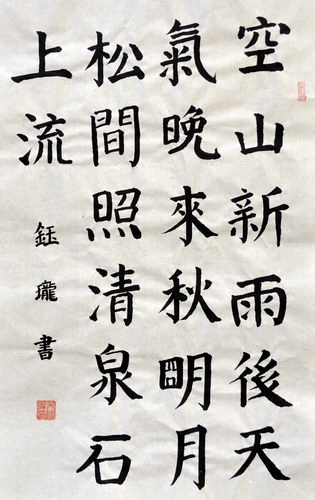 空山新雨後天
氣晚來秋明月
松間照清泉石
上流
鈺瓏書